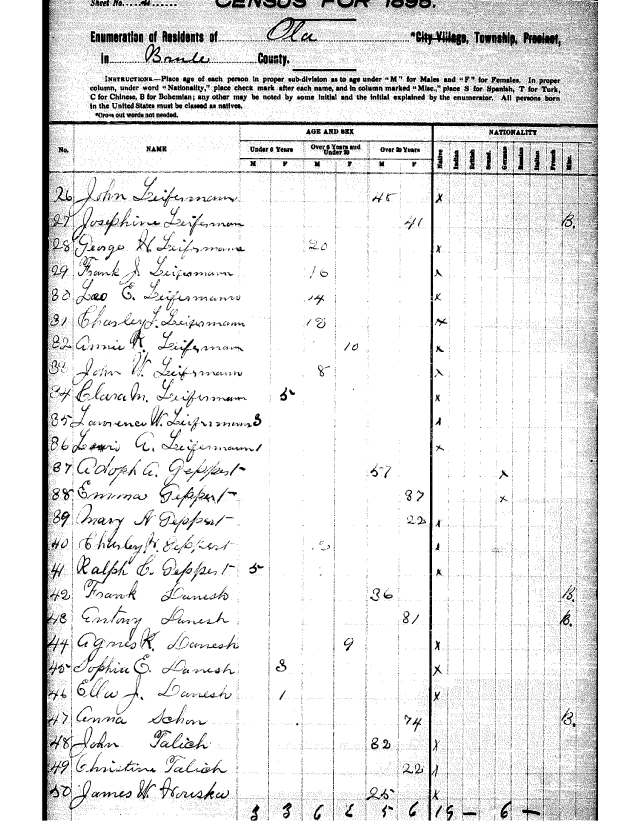 Sheet No.
CENSUS FOR 1895.
Enumeration of Residents of Ola *City Village, Township, Precinct,
in Brule County.
INSTRUCTIONS.—Place age of each person in proper sub-division as to age under "M" for Males and "F" for Females. In proper
column, under word "Nationality," place check mark after each name, and in column marked "Misc.," place S for Spanish, T for Turk,
C for Chinese, B for Bohemian; any other may be noted by some initial and the initial explained by the enumerator. All persons born
in the United States must be classed as natives.
*Cross out words not needed.
AGE AND SEX NATIONALITY
No. NAME Under 6 Years Over 6 Years and Under 20 Over 20 Years
M F M F M F Native Indian British Scand. German Russian Italian French Misc.
26 John Leifermann 45 x
27 Josephine Leiferman 41 B.
28 George H. Leifermann 20 x
29 Frank J. Leifermann 16 x
30 Leo E. Leifermann 14 x
31 Charley L. Leifermann 12 x
32 Annie K. Leifermann 10 x
33 John W. Leifermann 8 x
34 Clara M. Leifermann 5 x
35 Lawrence W. Leifermann 3 x
36 Lewis A. Leifermann 1 x
37 Adolph A. Geppert 57 x
38 Emma Geppert 37 x
39 Mary A Geppert 22 x
40 Charley H. Geppert x
41 Ralph C. Geppert 5 x
42 Frank Danesh 36 B.
43 Antony Danesh 31 B.
44 Agnes K. Danesh 9 x
45 Sophia E. Danesh 3 x
46 Ella J. Danesh 1 x
47 Anna Schon 74 B.
48 John Talich 32 x
49 Christine Talich 22 x
50 James W. Houska 25 x
3 3 6 2 5 6 19 — 6 —